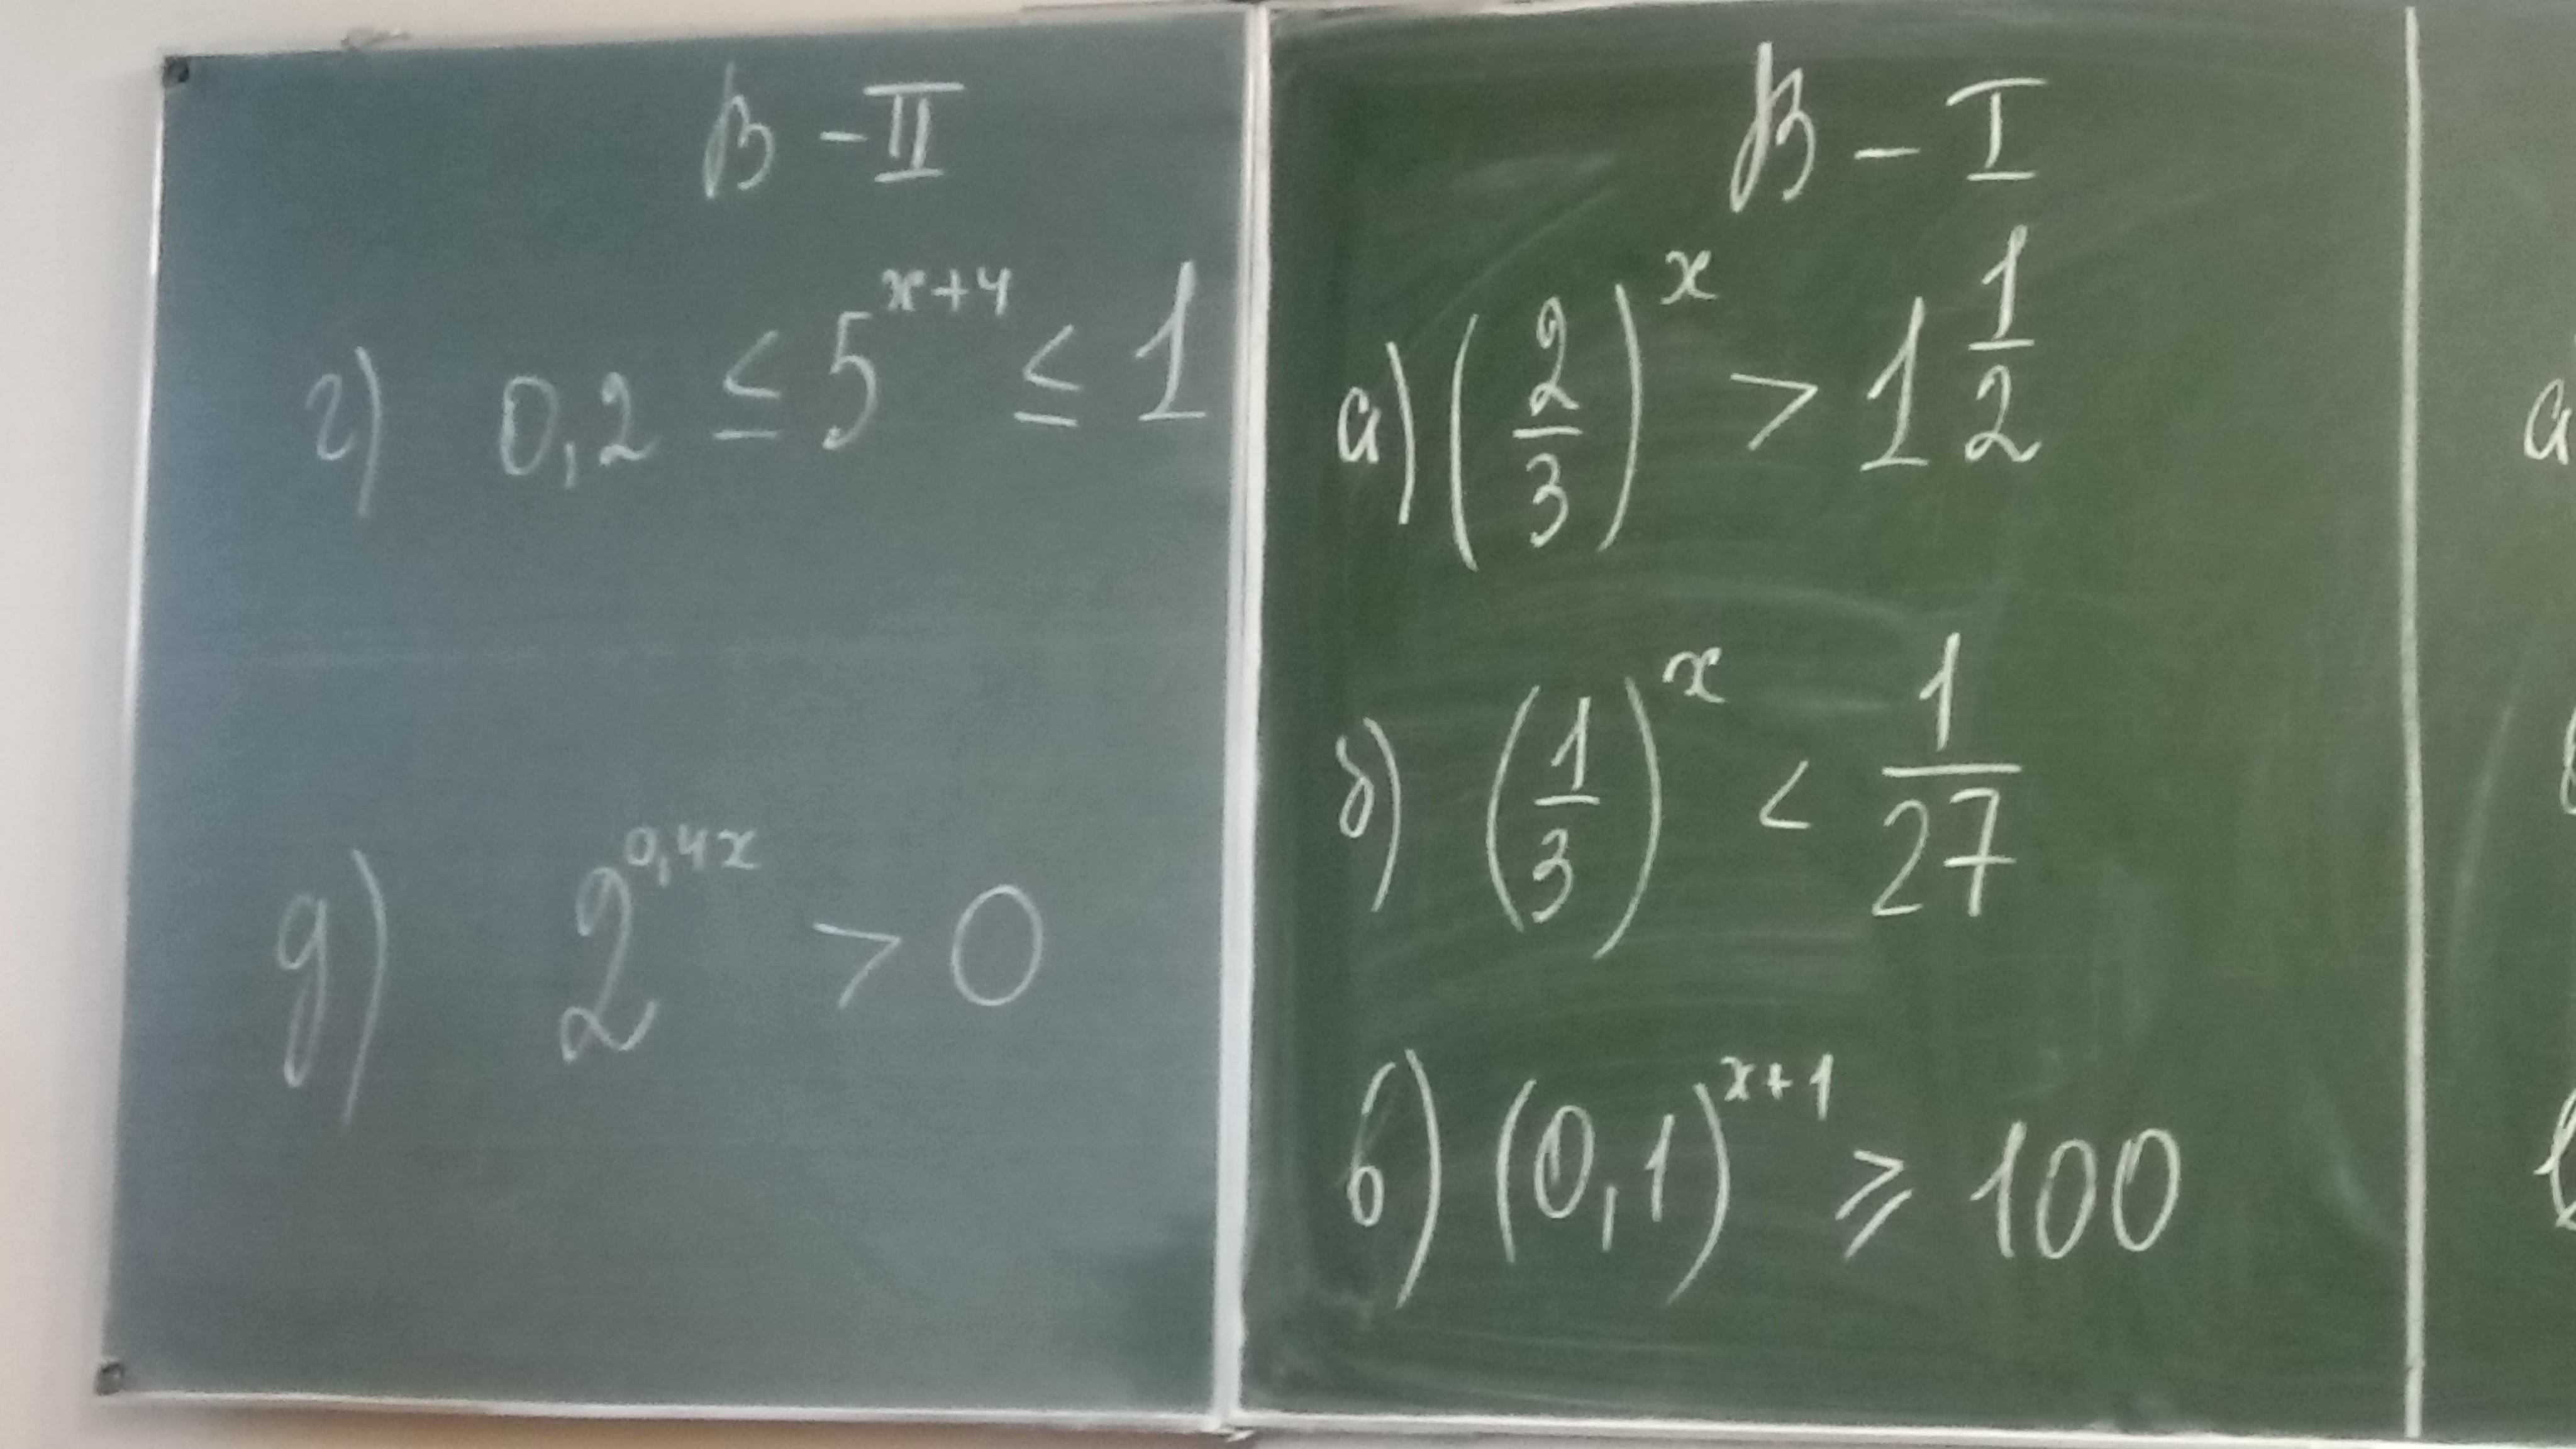 В - II
г) 0,2 ≤ 5^{x+4} ≤ 1
д) 2^{0,4x} > 0
В - I
а) (2/3)^x > 1 1/2
б) (1/3)^x < 1/27
в) (0,1)^{x+1} ⩾ 100
а